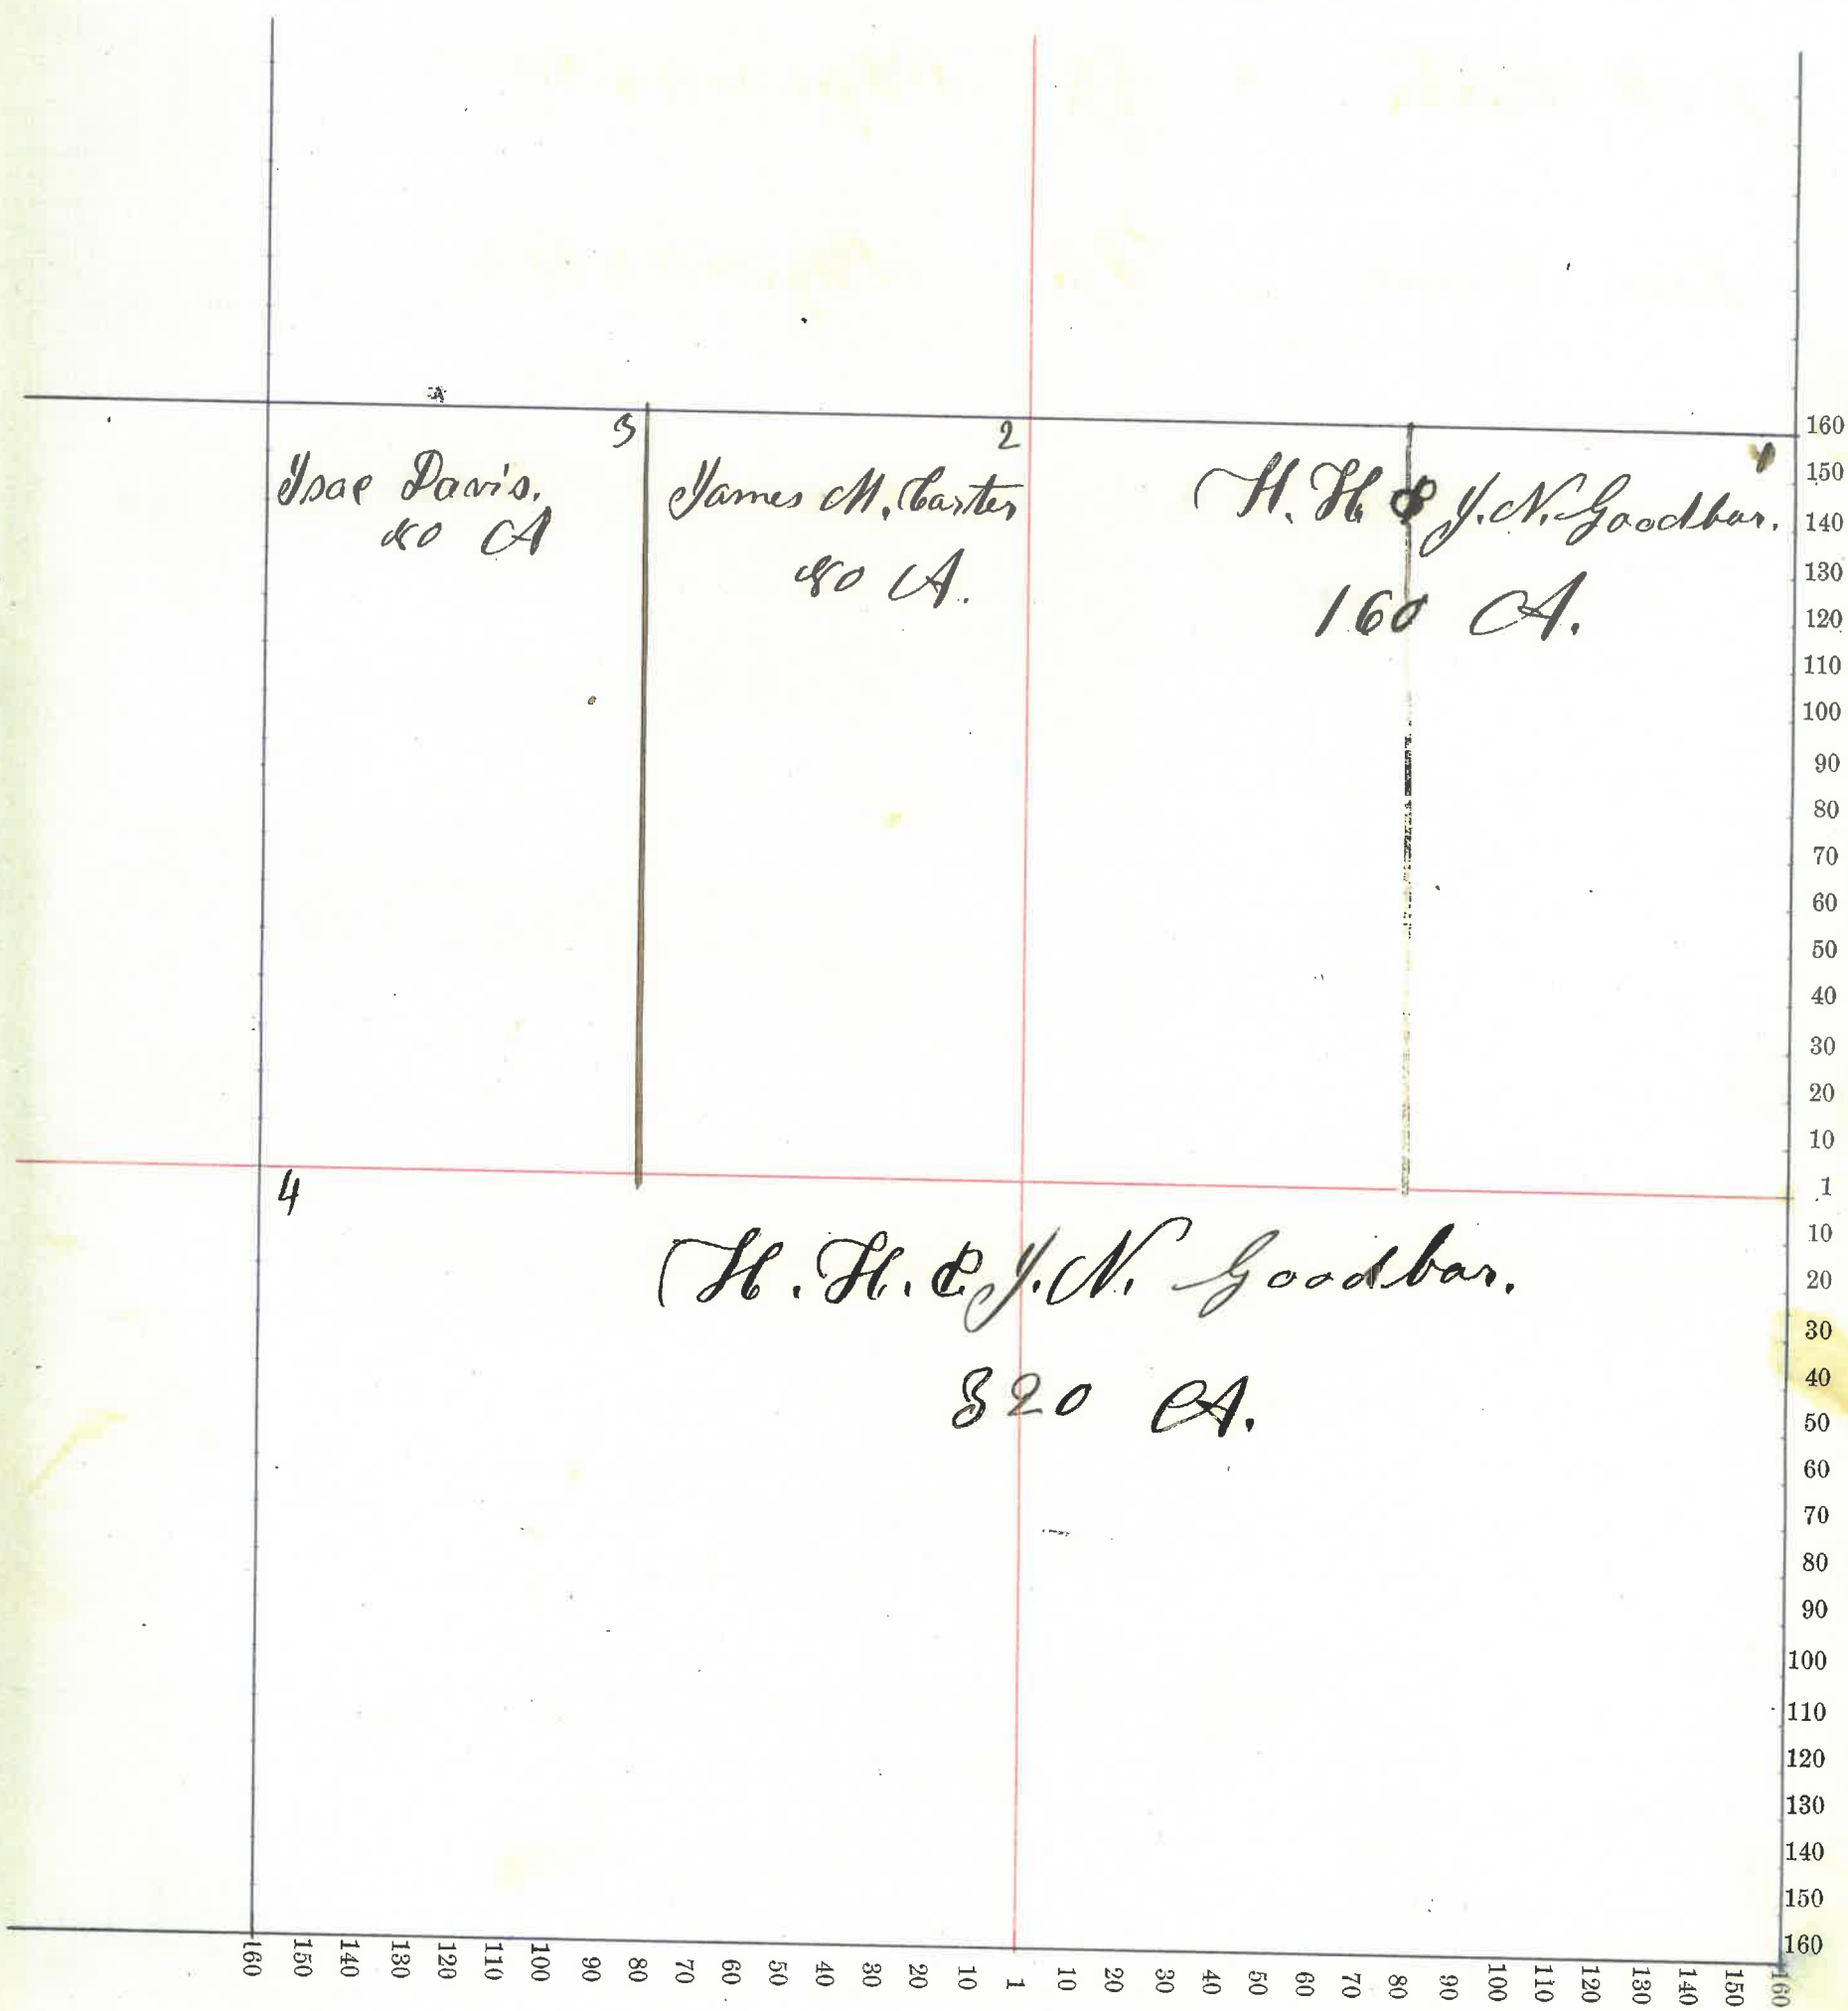 3
Isae Davis.
80 A
2
James M. Carter
80 A.
H. H. & J. N. Goodbar.
160 A.
4
H. H. & J. N. Goodbar.
320 A.
160
150
140
130
120
110
100
90
80
70
60
50
40
30
20
10
1
10
20
30
40
50
60
70
80
90
100
110
120
130
140
150
160
160 150 140 130 120 110 100 90 80 70 60 50 40 30 20 10 1 10 20 30 40 50 60 70 80 90 100 110 120 130 140 150 160